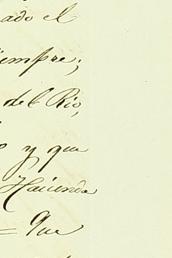 ado el
iempre;
del Rio,
y que
Hacienda
= Que